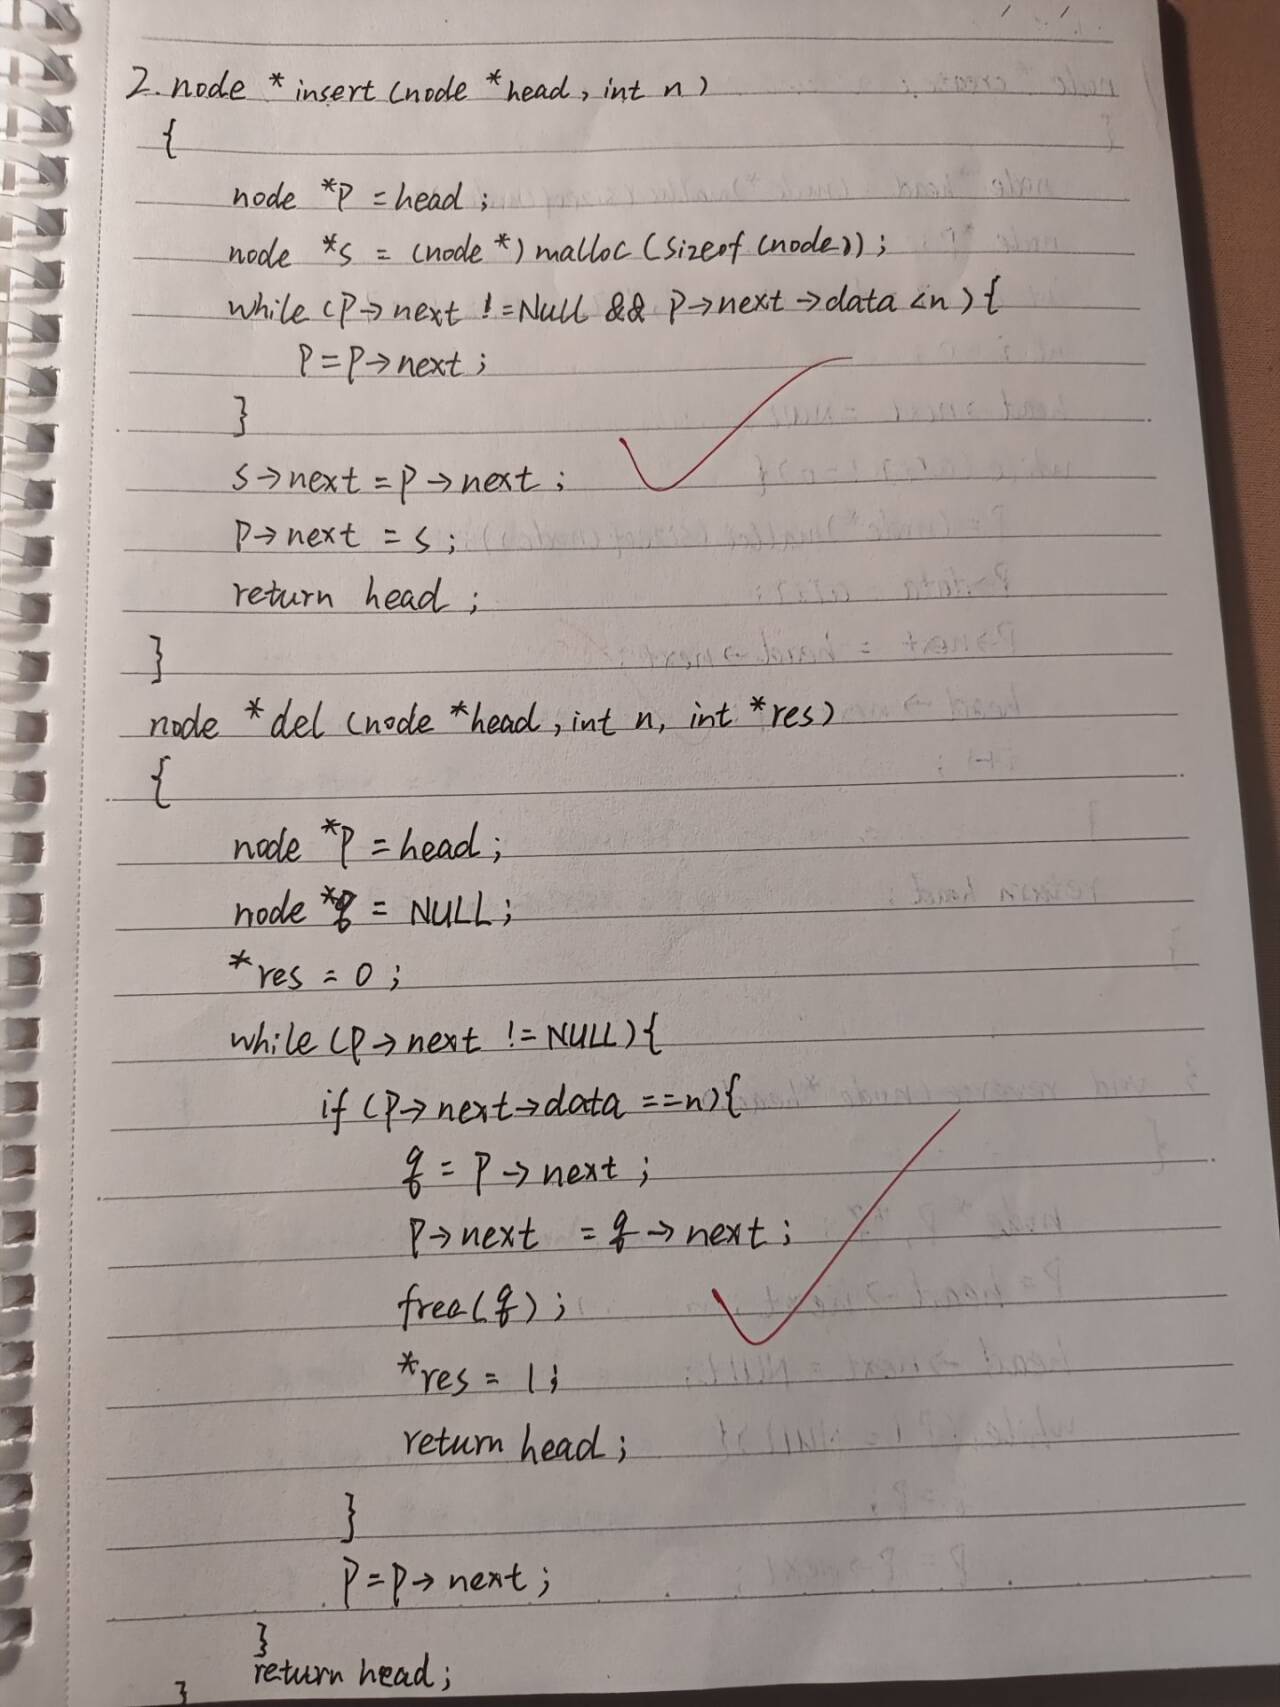 2. node * insert (node *head, int n)
{
node *p = head;
node *s = (node *) malloc (sizeof (node));
while (p→next != Null && p→next→data <n) {
p = p→next;
}
s→next = p→next;
p→next = s;
return head;
}
node *del (node *head, int n, int *res)
{
node *p = head;
node *q = NULL;
*res = 0;
while (p→next != NULL) {
if (p→next→data ==n) {
q = p→next;
p→next = q→next;
free(q);
*res = 1;
return head;
}
p = p→next;
}
return head;
}